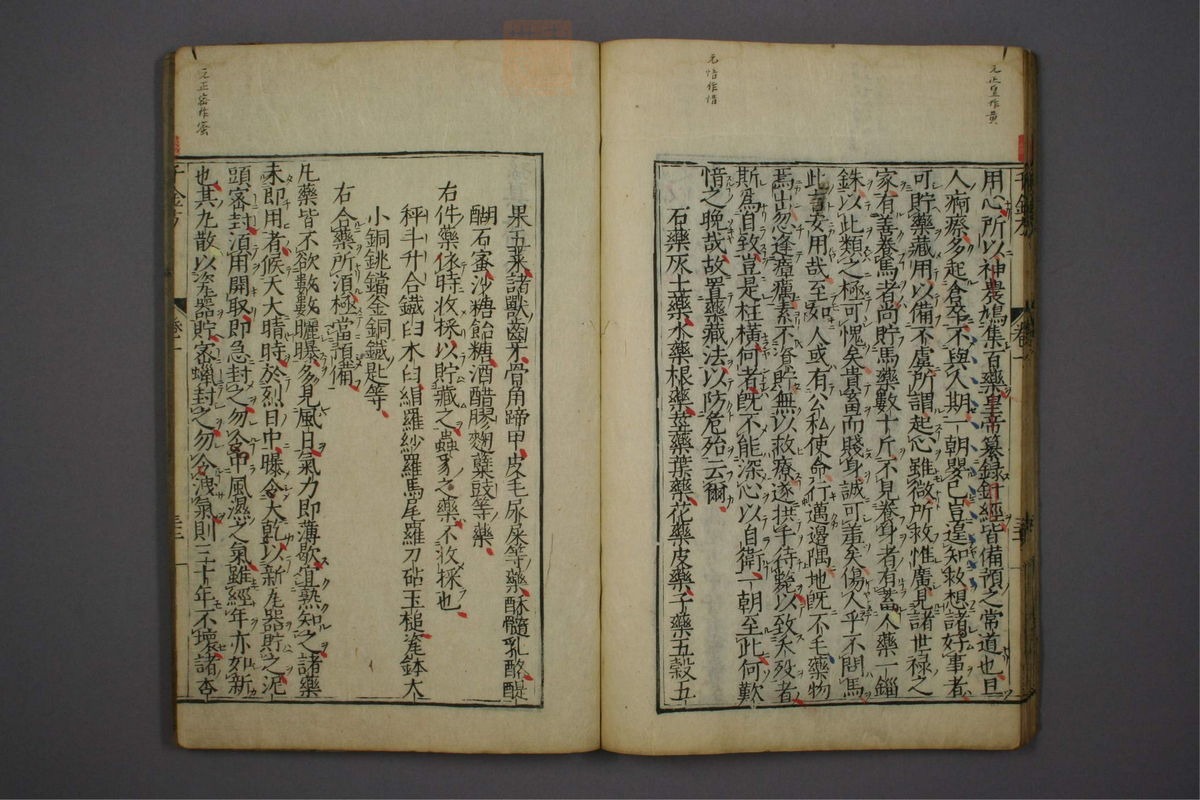 元正皇作黄
元惜作惜
用心所以神農鳩集百藥皇帝纂録針經皆備預之常道也且
人痾瘵多起倉卒不與人期一朝嬰已豈遑知救想諸好事者
可貯藥藏用以備不虞所謂起心雖微所救惟廣見諸世禄之
家有善養馬者尚貯馬藥數十斤不見養身者有蓄人藥一錙
銖以此類之極可愧矣貴畜而賤身誠可羞矣傷人乎不問馬
此言安用哉至如人或有公私使命行邁邊隅地既不毛藥物
焉出忽逢瘴癘素不資貯無以救療遂拱手待斃以致夭歿者
斯爲自致豈是枉横何者既不能深心以自衛一朝至此何歎
惜之晚哉故置藥藏法以防危殆云爾
石藥灰土藥水藥根藥莖藥葉藥花藥皮藥子藥五穀五
千金方 卷一
果五菜諸獸齒牙骨角蹄甲皮毛尿屎等藥酥髓乳酪醍
醐石蜜沙糖飴糖酒醋膠麹蘗豉等藥
右件藥依時收採以貯藏之蟲豸之藥不收採也
秤斗升合鐵臼木臼絹羅紗羅馬尾羅刀砧玉槌瓷鉢大
小銅銚鐺釜銅鐵匙等
右合藥所須極當預備
凡藥皆不欲數數曬曝多見風日氣力即薄歇宜熟知之諸藥
未即用者候天大晴時於烈日中曝令大乾以新瓦器貯之泥
頭密封須用開取即急封之勿令中風濕之氣雖經年亦如新
也其丸散以瓷器貯密蠟封之勿令洩氣則三十年不壞諸杏
千金方 卷一
元正密作蜜